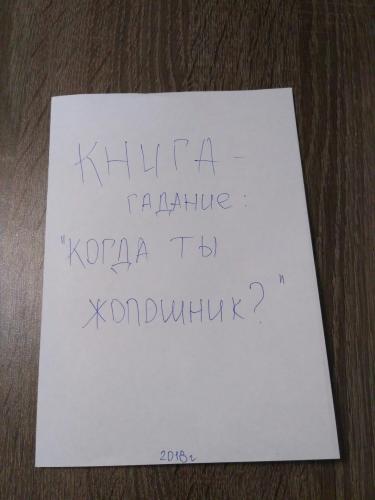 КНИГА -
ГАДАНИЕ:
"КОГДА ТЫ
ЖОПОШНИК?"
2018г